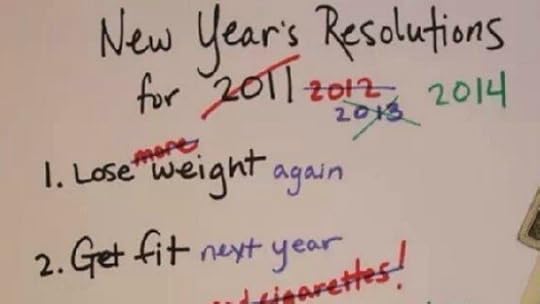 New Year's Resolutions
for 2011 2012 2014
2013
more
1. Lose weight again
2. Get fit next year
cigarettes!